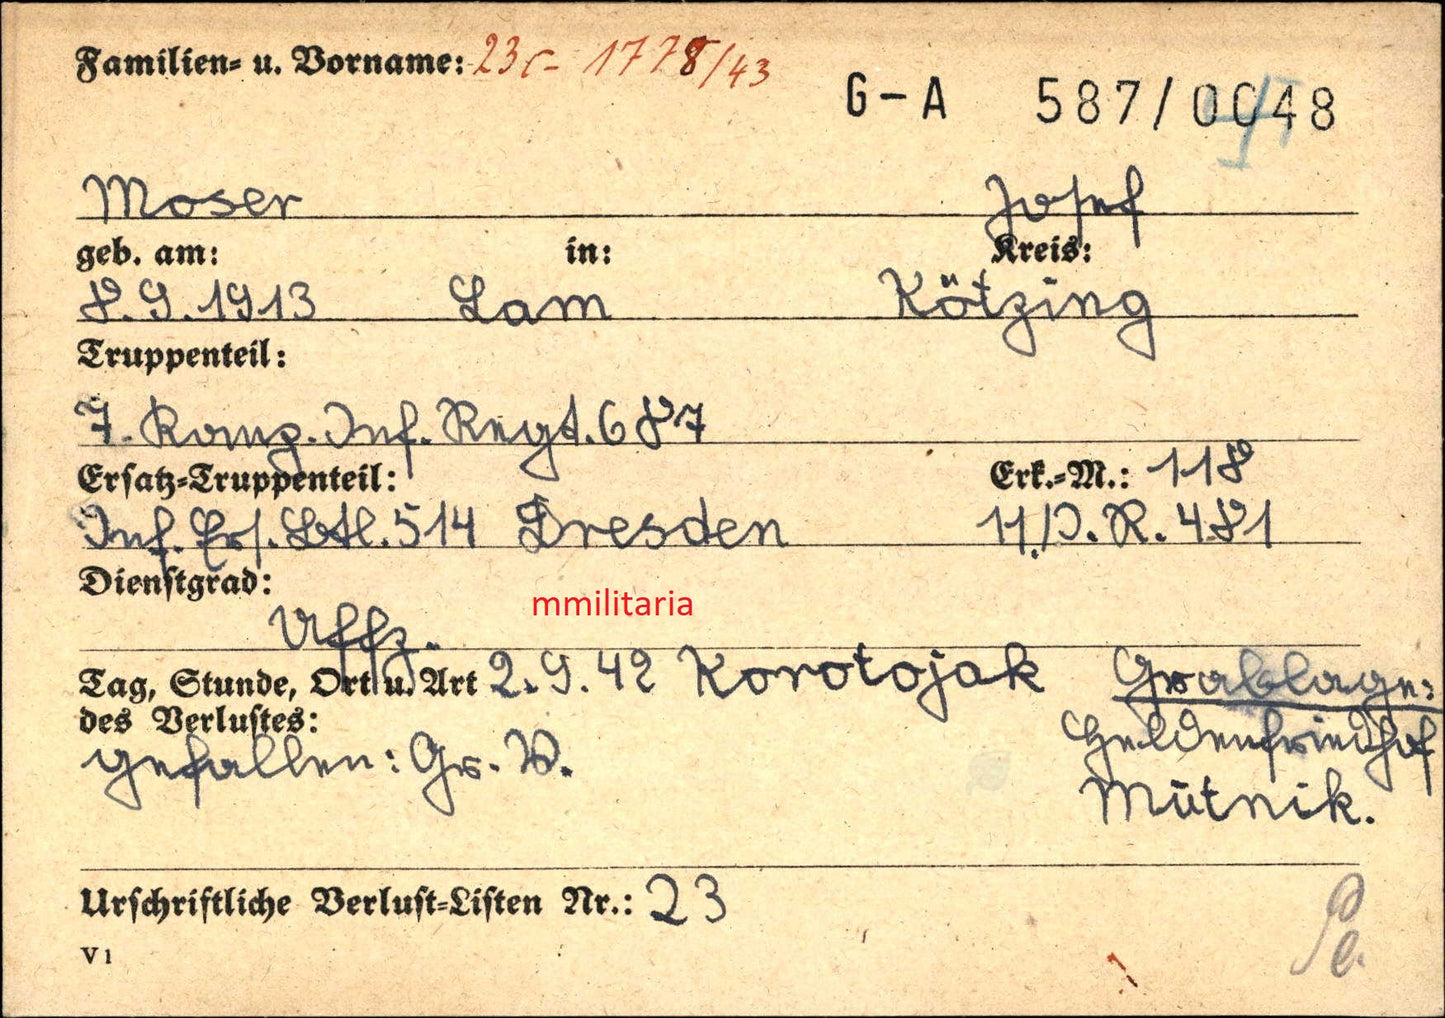 Familien- u. Vorname: 23c- 1778/43
G-A 587/0048
Moser Josef
geb. am: in: Kreis:
8.9.1913 Lam Kötzing
Truppenteil:
7. Komp. Inf. Regt. 687
Ersatz-Truppenteil: Erk.-M.: 118
Inf. Ers. Btl. 514 Dresden 11./I.R. 481
Dienstgrad:
Uffz.
mmilitaria
Tag, Stunde, Ort u. Art 2.9.42 Korotojak Grablage:
des Verlustes: Heldenfriedhof
gefallen: Gr. W. Mutnik.
Urschriftliche Verlust-Listen Nr.: 23
V 1